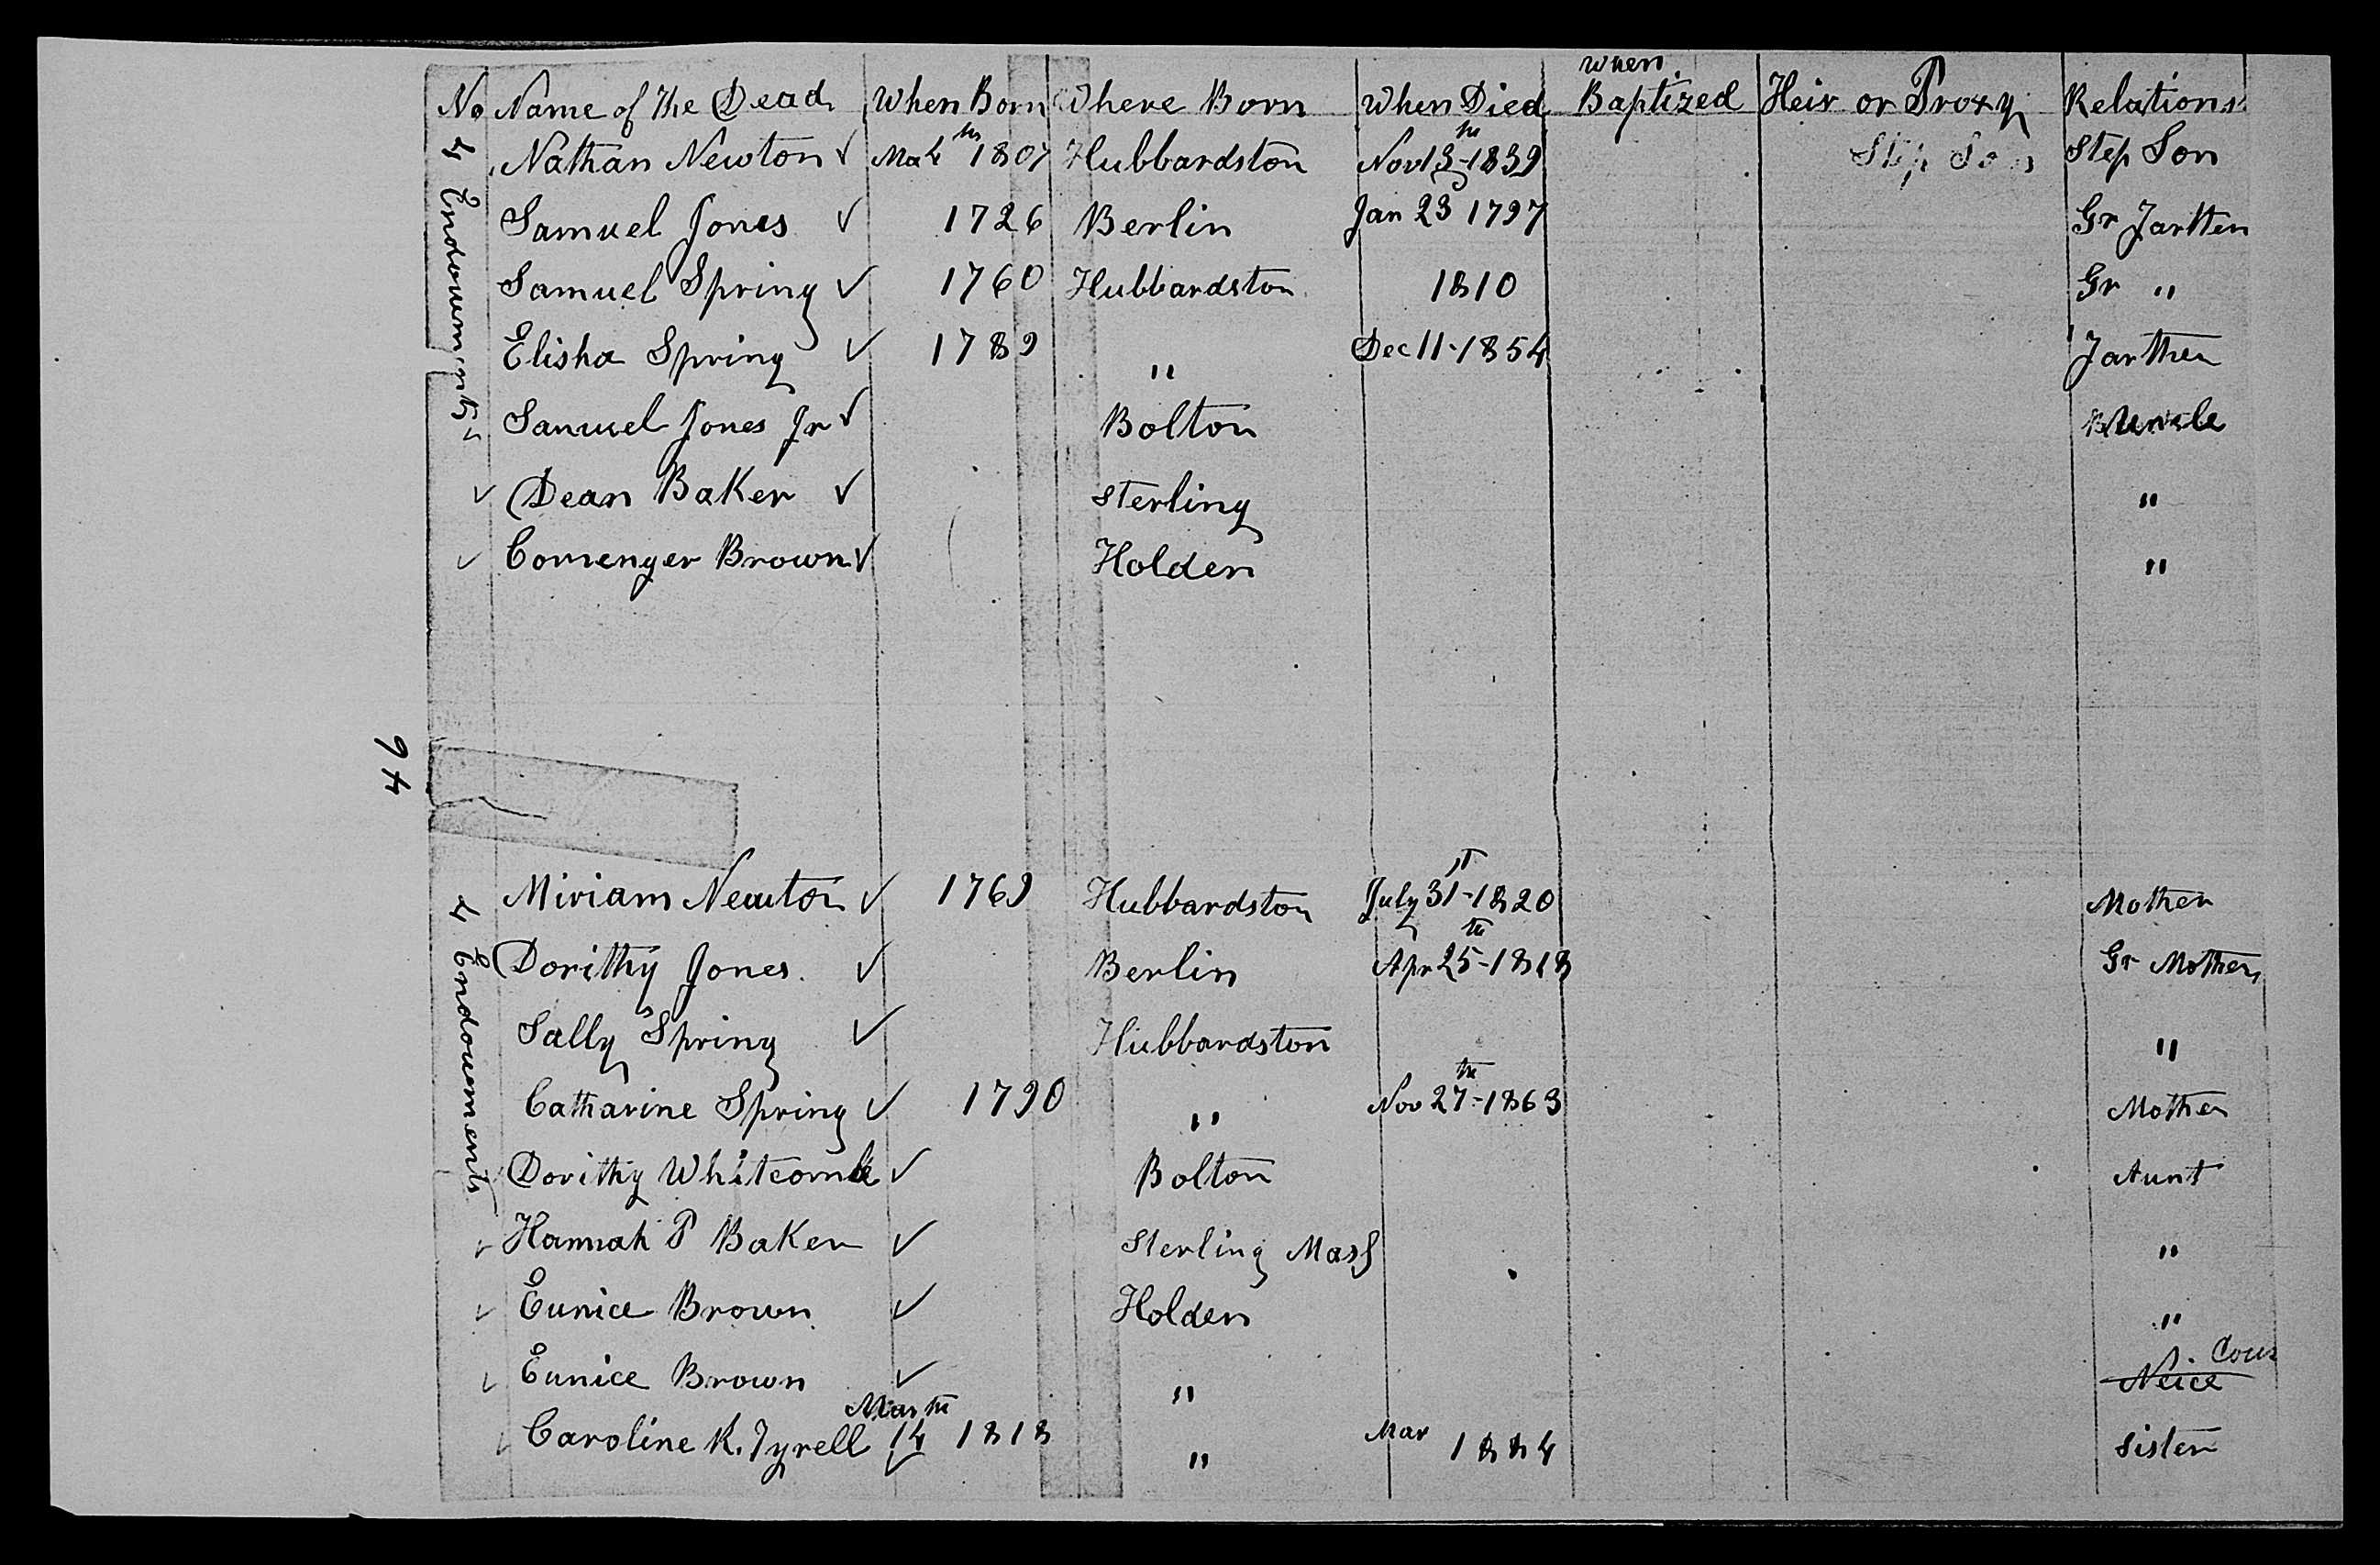 No Name of The Dead When Born Where Born When Died when Baptized Heir or Proxy Relations
Nathan Newton ✓ Ma 4th 1807 Hubbardston Nov 13th-1839 Step Son Step Son
Samuel Jones ✓ 1726 Berlin Jan 23 1797 Gr Farther
Samuel Spring ✓ 1760 Hubbardston 1810 Gr "
Elisha Spring ✓ 1789 " Dec 11-1854 Farther
Samuel Jones Jr ✓ Bolton Uncle
✓ Dean Baker ✓ Sterling "
✓ Brown ✓ Holden "
4 Endowments ✓
94
Miriam Newton ✓ 1769 Hubbardston July 31st-1820 Mother
Dorithy Jones ✓ Berlin Apr 25th-1818 Gr Mother
Sally Spring ✓ Hubbardston "
Catharine Spring ✓ 1790 " Nov 27th-1863 Mother
Dorithy Whitcomb ✓ Bolton Aunt
✓ Hannah P Baker ✓ Sterling Mass "
✓ Eunice Brown ✓ Holden "
✓ Eunice Brown ✓ " Neice Cous
✓ Caroline K. Tyrell Mar 14th 1818 ✓ " Mar 1884 Sister
4 Endowements